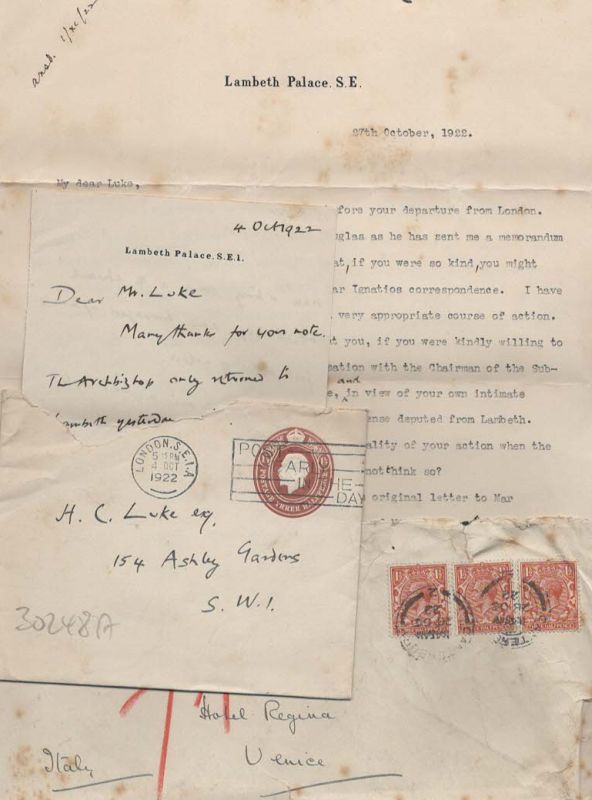 ansd. 1/XI/22
Lambeth Palace. S.E.
27th October, 1922.
My dear Luke,
fore your departure from London.
uglas as he has sent me a memorandum
at, if you were so kind, you might
ar Ignatios correspondence. I have
very appropriate course of action.
t you, if you were kindly willing to
ation with the Chairman of the Sub-
e, and in view of your own intimate
ense deputed from Lambeth.
ality of your action when the
not think so?
original letter to Mar
4 Oct 1922
Lambeth Palace. S.E.1.
Dear Mr. Luke
Many thanks for your note.
The Archbishop only returned to
Lambeth yesterday
LONDON. S.E.1.A
5 15 PM
4 OCT
1922
PO
AR
IN THE
DAY
THREE HAL
H. C. Luke esq.
154 Ashley Gardens
S. W. 1.
30248A
Hotel Regina
Venice
Italy